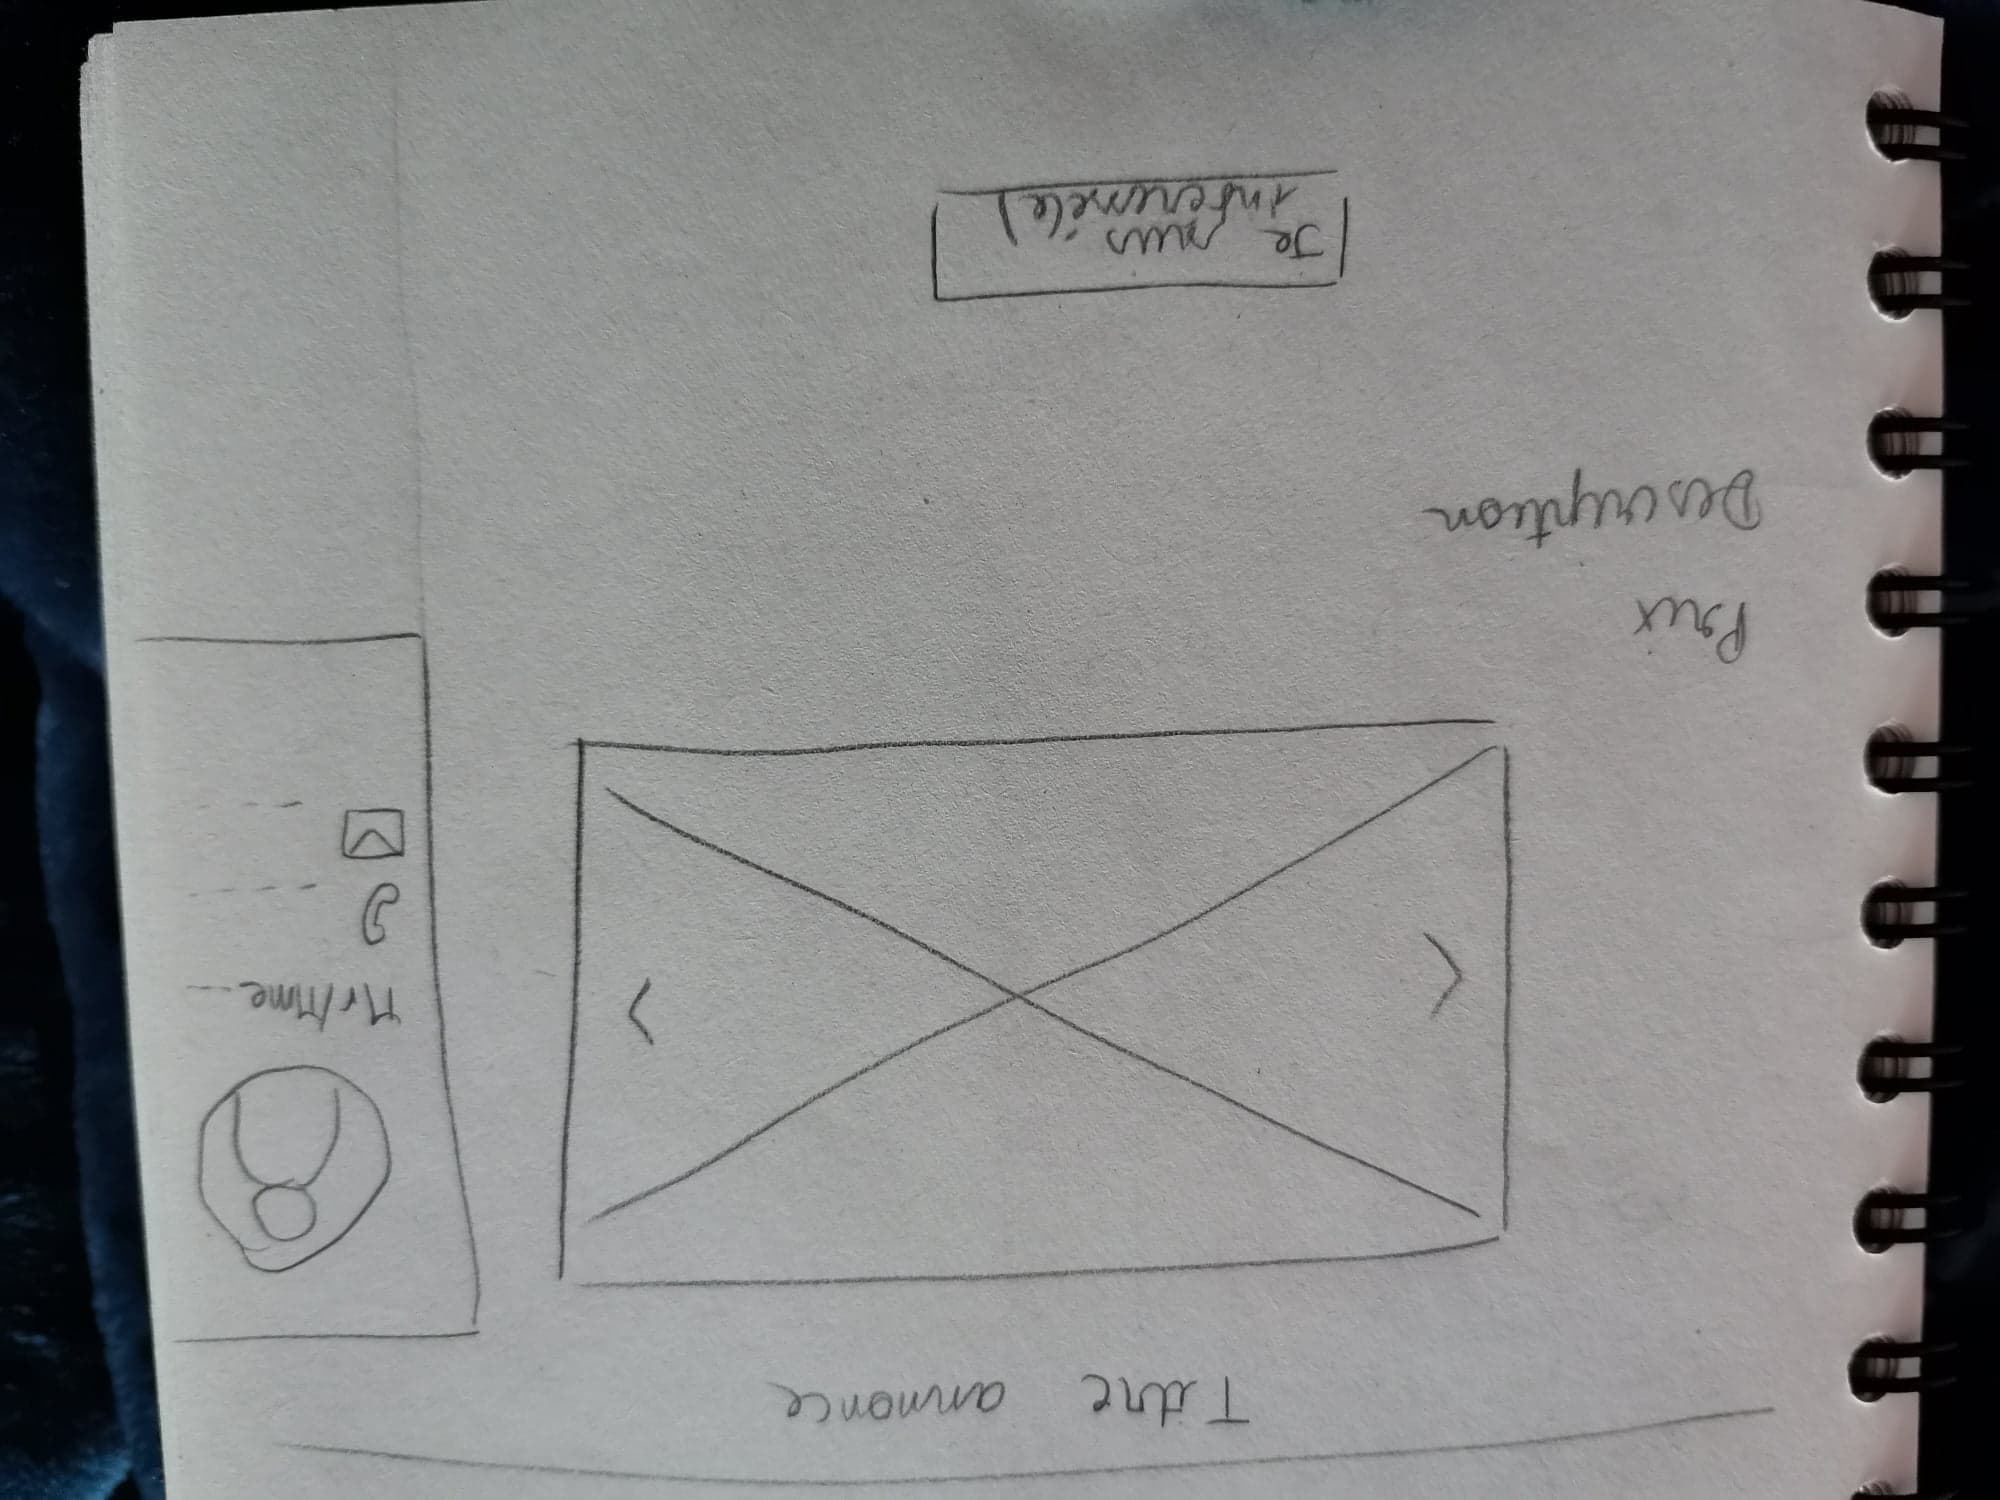 Titre annonce
< >
Mr/Mme ---
Prix
Description
Je suis
intéressé(e)